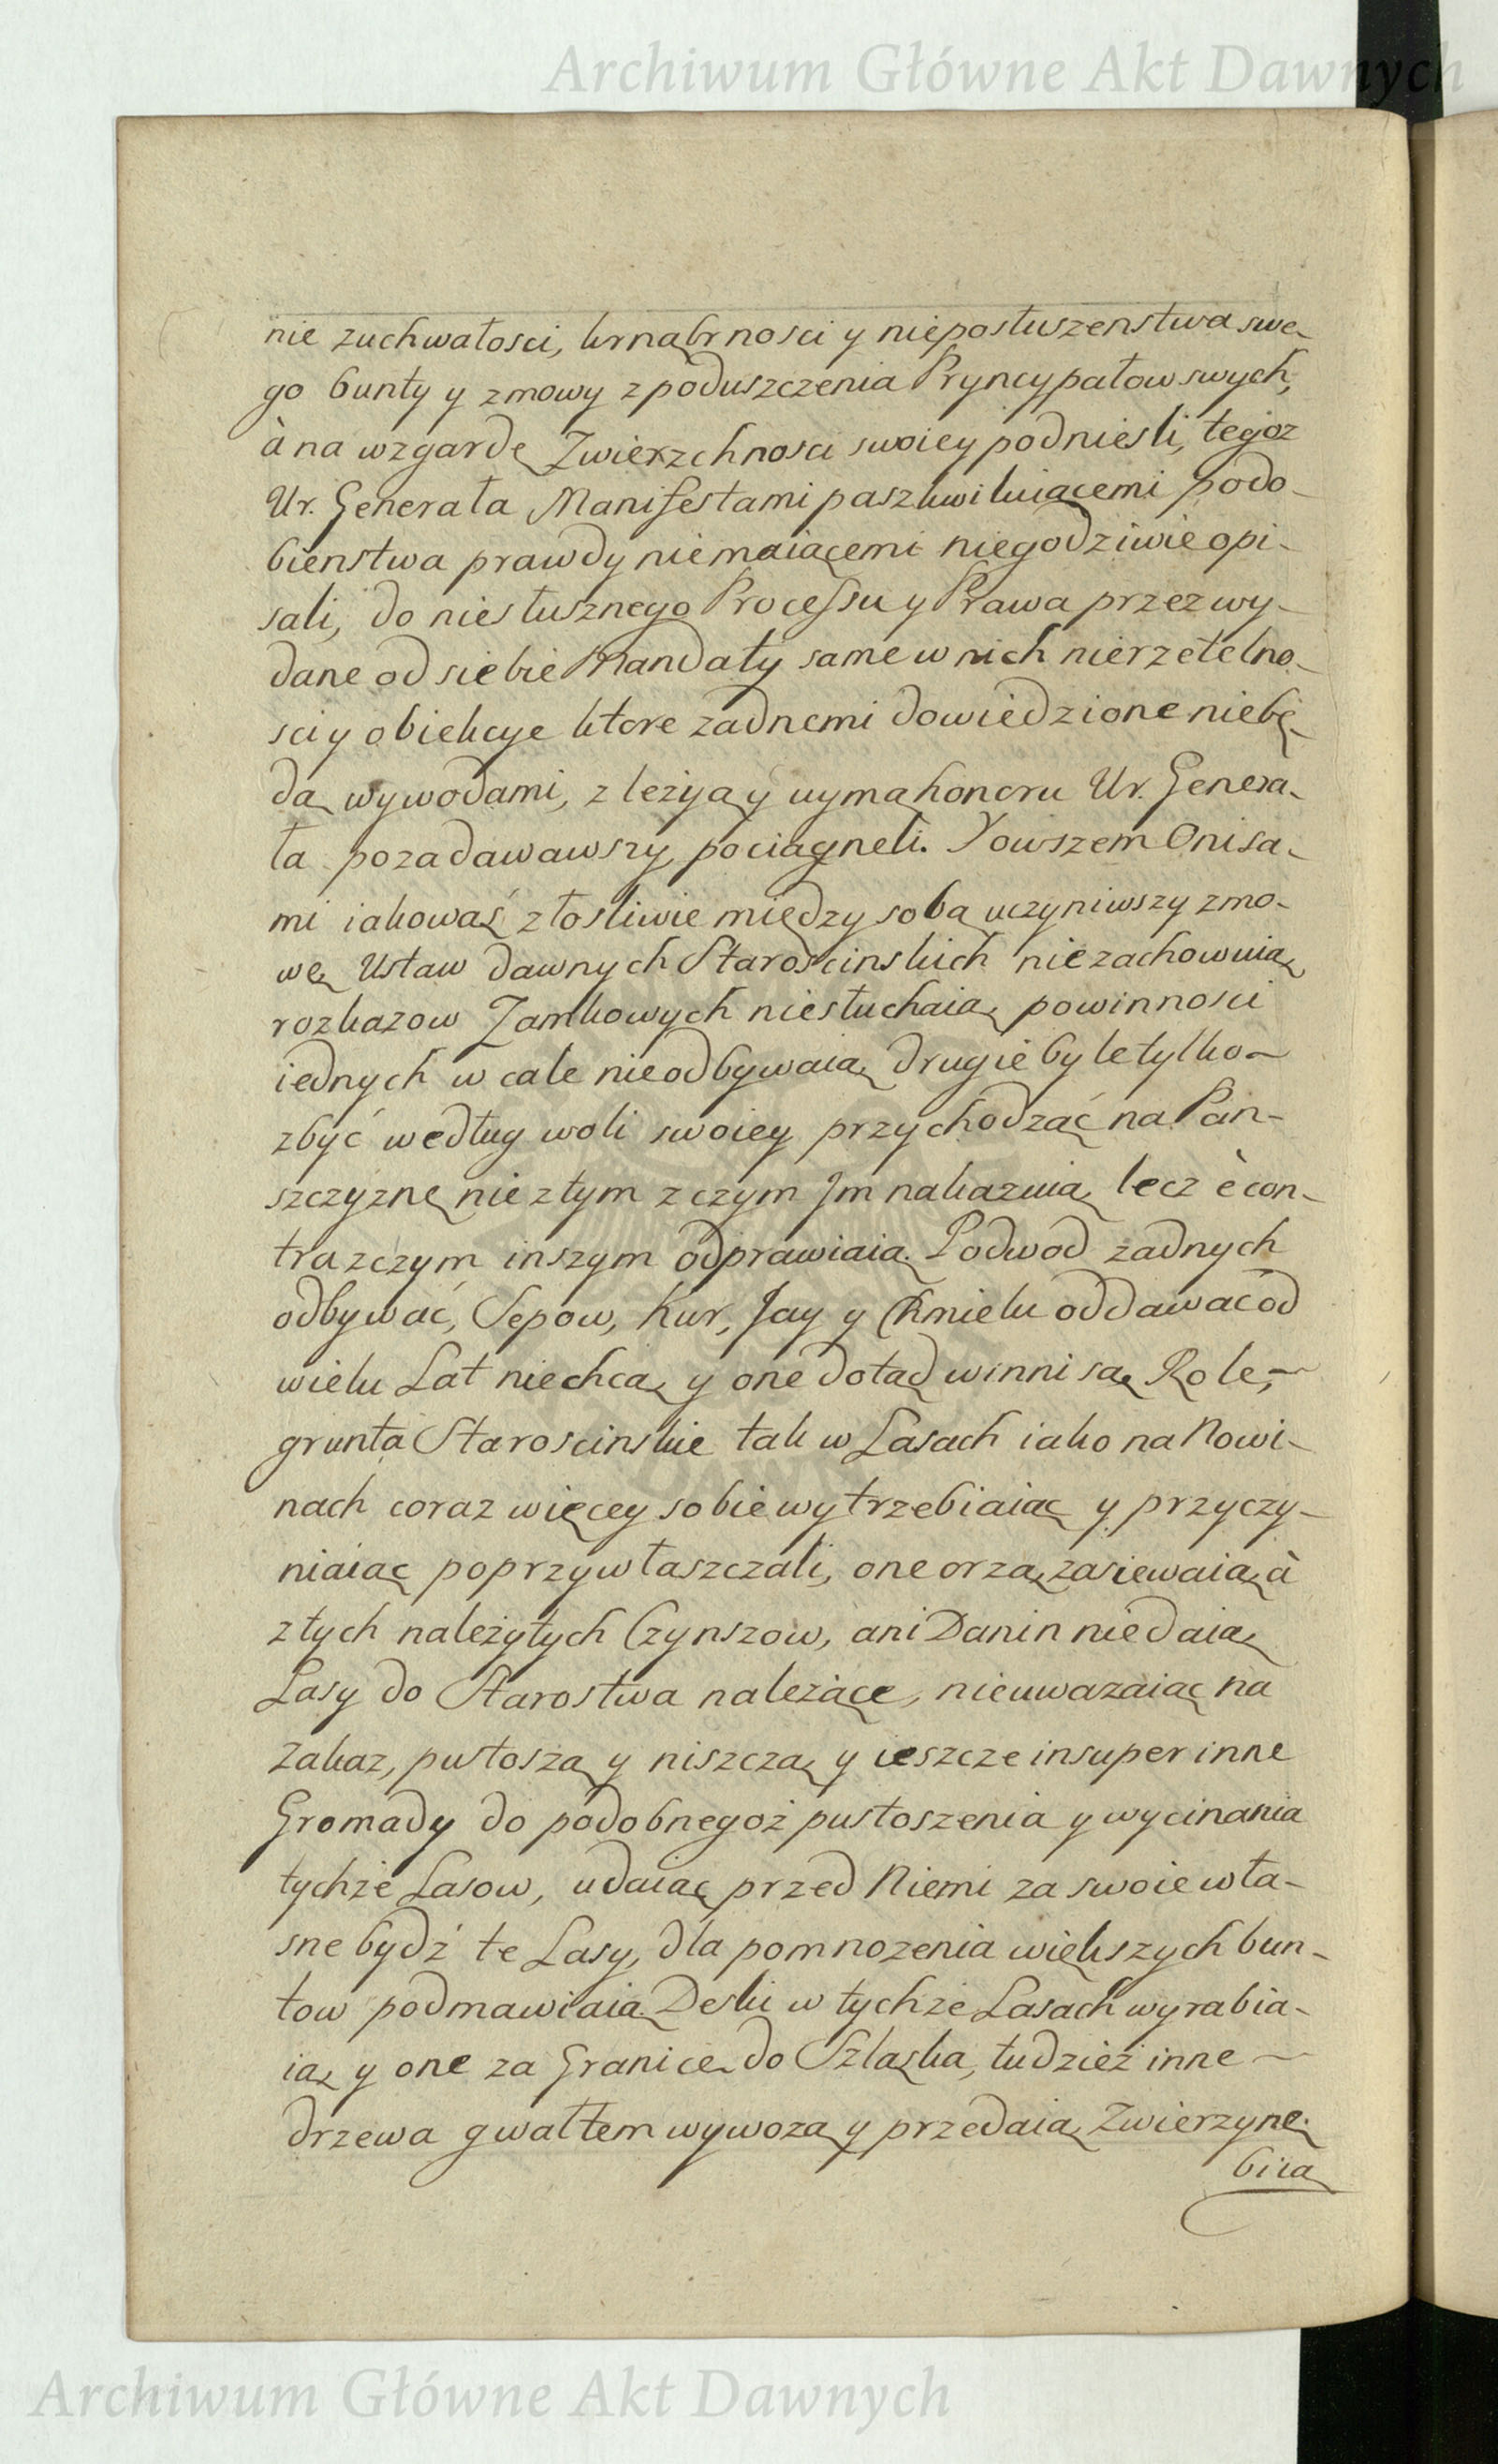 Archiwum Główne Akt Dawnych
nie zuchwałosci, krnąbrnosci y nieposłuszenstwa swe-
go bunty y zmowy z poduszczenia Pryncypałow swych,
à na wzgardę Zwierzchnosci swoiey podniesli, tegoz
Ur. Generała Manifestami paszkwiluiącemi podo-
bienstwa prawdy niemaiącemi niegodziwie opi-
sali, do niesłusznego Processu y Prawa przez wy-
dane od siebie Mandaty same w nich nierzetelno-
sci y obiekcye ktore zadnemi dowiedzione niebę-
dą wywodami, z lezyą y uymą honoru Ur. Genera-
ła pozadawawszy, pociągneli. Y owszem Oni sa-
mi iakowąś złosliwie między sobą uczyniwszy zmo-
wę Ustaw dawnych Starościnskich niezachowuią
rozkazow Zamkowych niesłuchaią, powinnosci
iednych w cale nieodbywaią drugie by le tylko
zbyć według woli swoiey przychodząć na Pan-
szczyznę nie z tym z czym Im nakazuią lecz è con-
tra z czym inszym odprawiaią. Podwod zadnych
odbywać, Sepow, Kur, Jay y Chmielu oddawać od
wielu Lat niechcą y one dotąd winni są. Role,
grunta Staroscinskie tak w Lasach iako na Nowi-
nach coraz więcey sobie wytrzebiaiąc y przyczy-
niaiąc poprzywłaszczali, one orzą, zasiewaią, à
z tych należytych Czynszow, ani Danin niedaią
Lasy do Starostwa należące, nieuwazaiąc na
Zakaz, pustoszą y niszczą, y ieszcze insuper inne
Gromady do podobnegoż pustoszenia y wycinania
tychże Lasow, udaiąc przed Niemi za swoie wła-
sne bydź te Lasy, dla pomnozenia większych bun-
tow podmawiaią. Deski w tychże Lasach wyrabia-
ią, y one za Granicę do Szląska, tudzież inne
drzewa gwałtem wywozą y przedaią, Zwierzynę
biią
Archiwum Główne Akt Dawnych